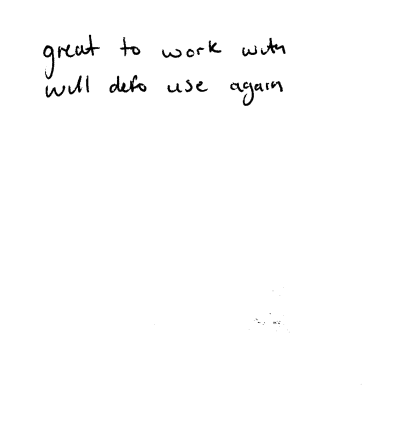 great to work with
will defo use again